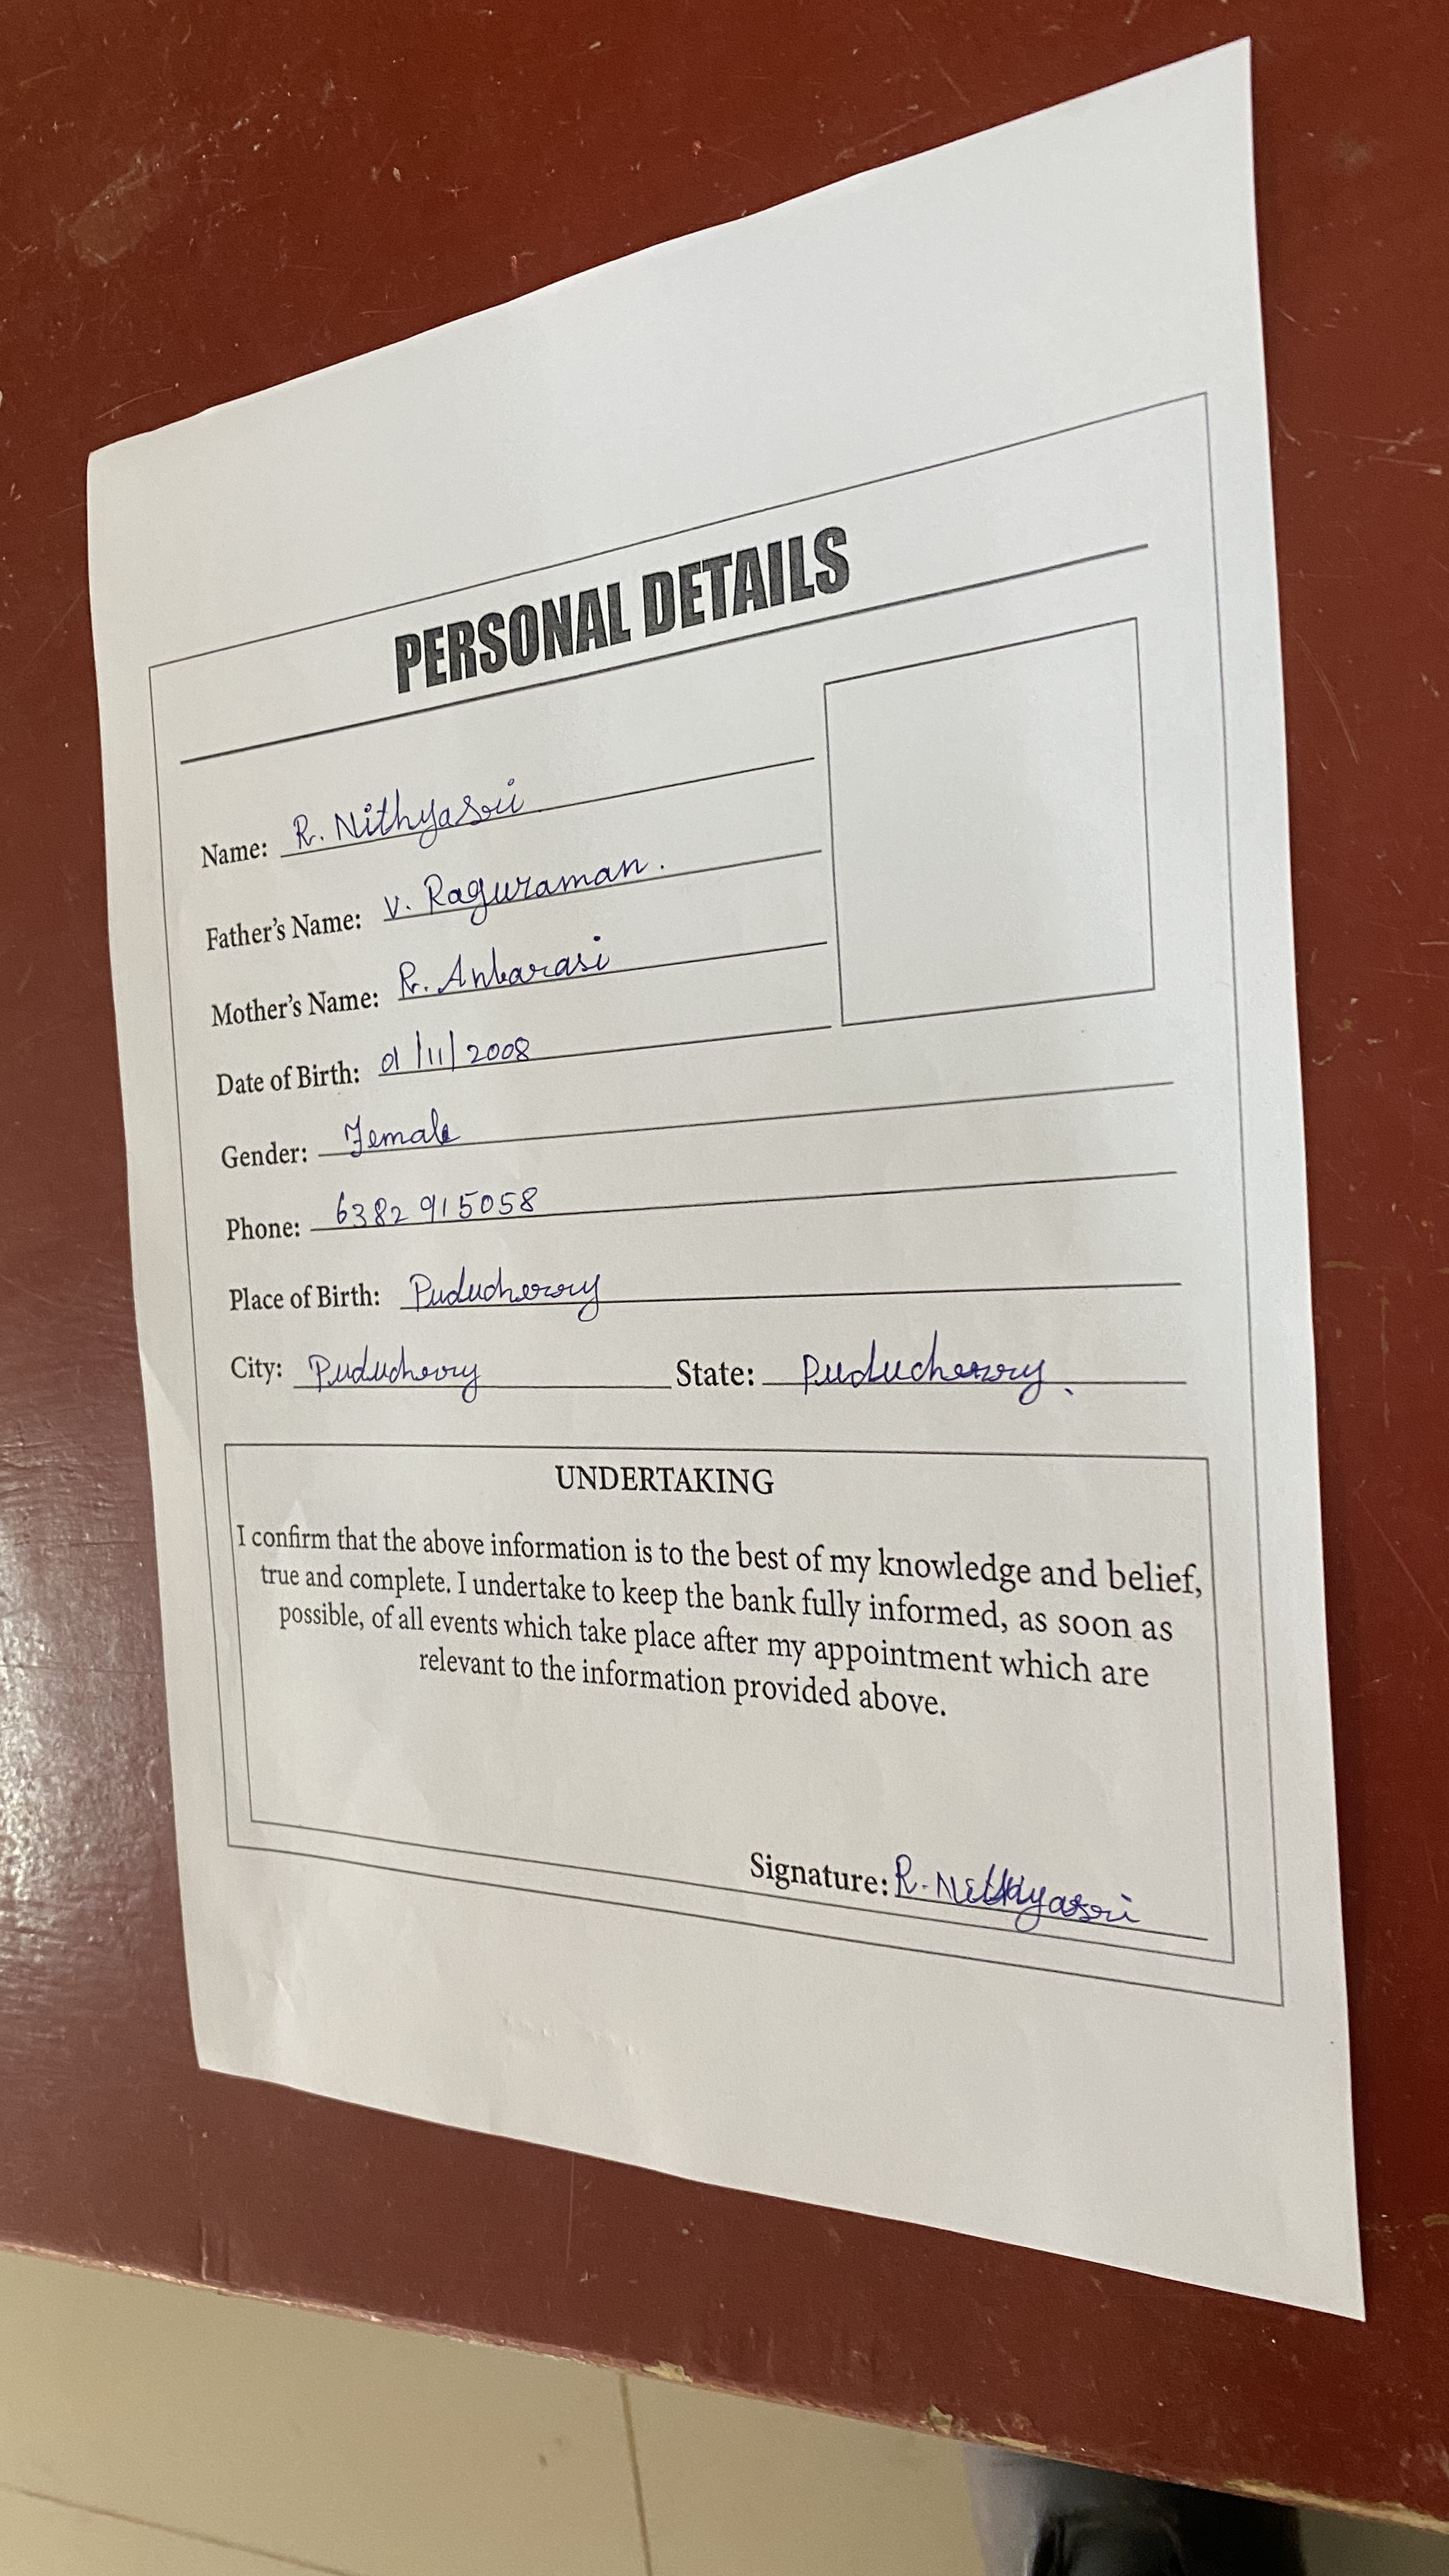 PERSONAL DETAILS
Name: R. Nithyasri
Father's Name: V. Raguraman.
Mother's Name: R. Anbarasi
Date of Birth: 01/11/2008
Gender: Female
Phone: 6382915058
Place of Birth: Puducherry
City: Puducherry State: Puducherry.
UNDERTAKING
I confirm that the above information is to the best of my knowledge and belief,
true and complete. I undertake to keep the bank fully informed, as soon as
possible, of all events which take place after my appointment which are
relevant to the information provided above.
Signature: R. Nithyasri